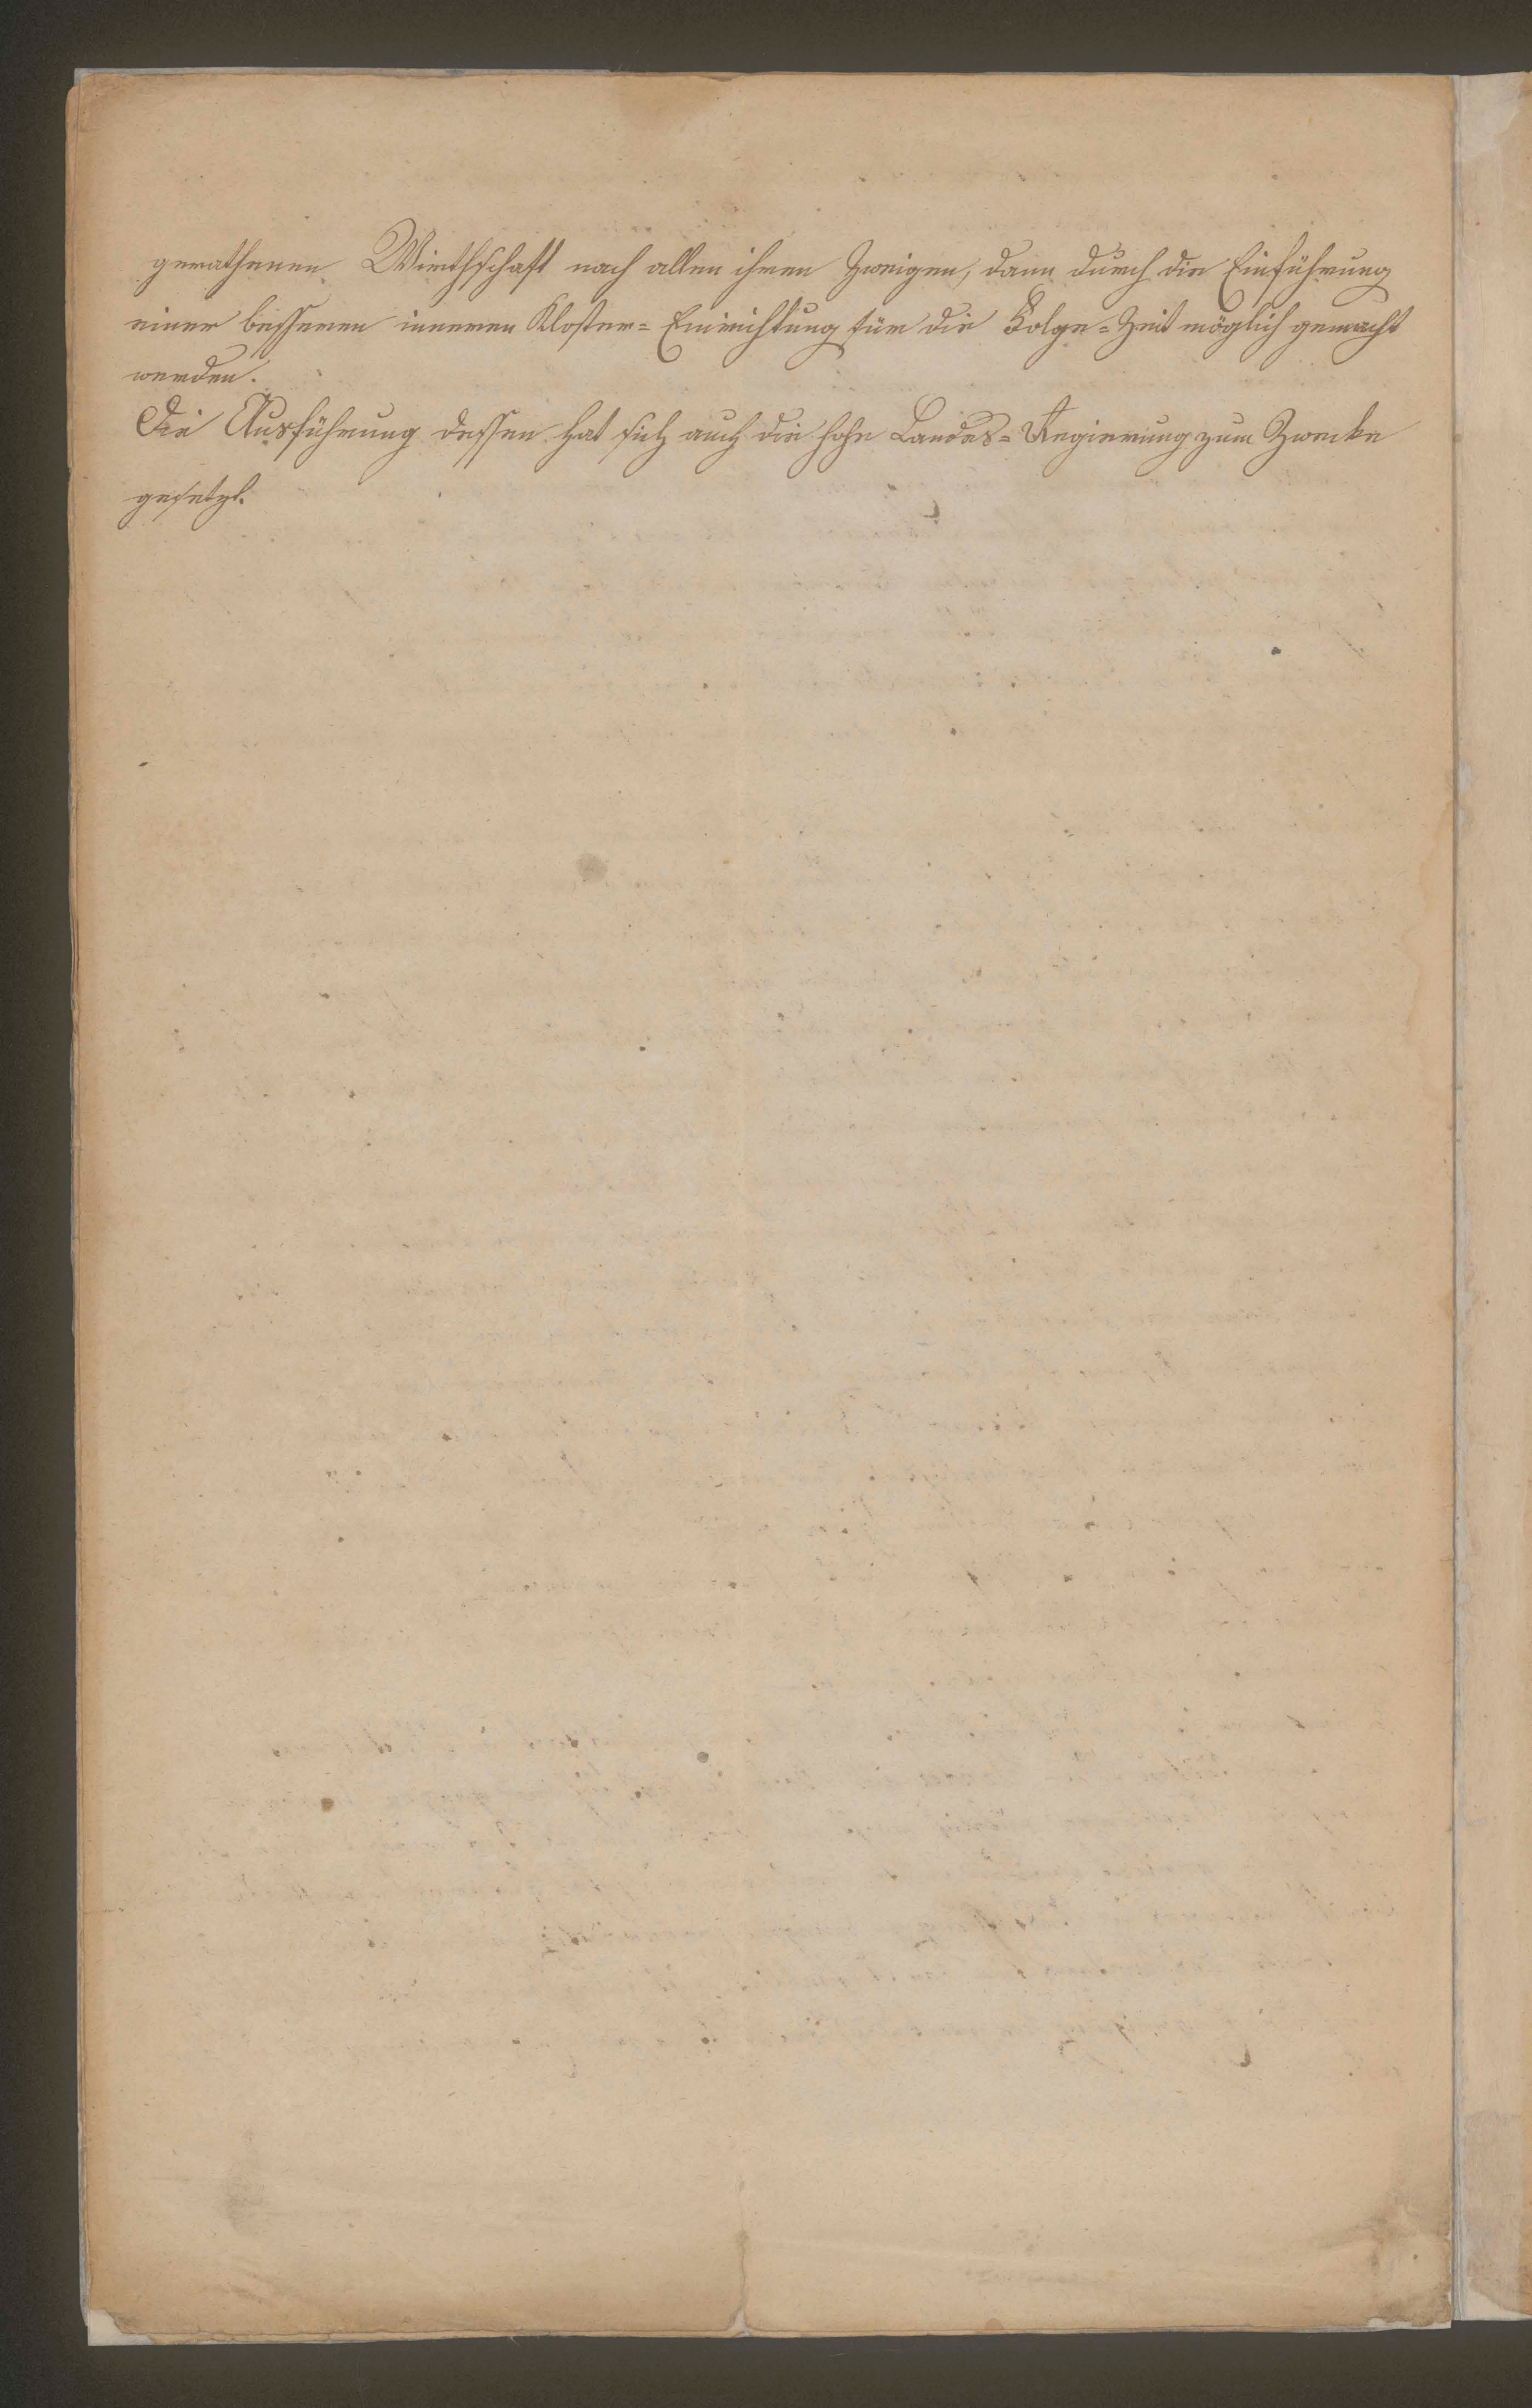 gerathenen Wirthschaft nach allen ihren Zweigen, dann durch die Einführung
einer besseren inneren Kloster= Einrichtung für die Folge=Zeit möglich gemacht
werden.
Die Ausführung dessen hat sich auch die hohe Landes=Regierung zum Zwecke
gesetzt.